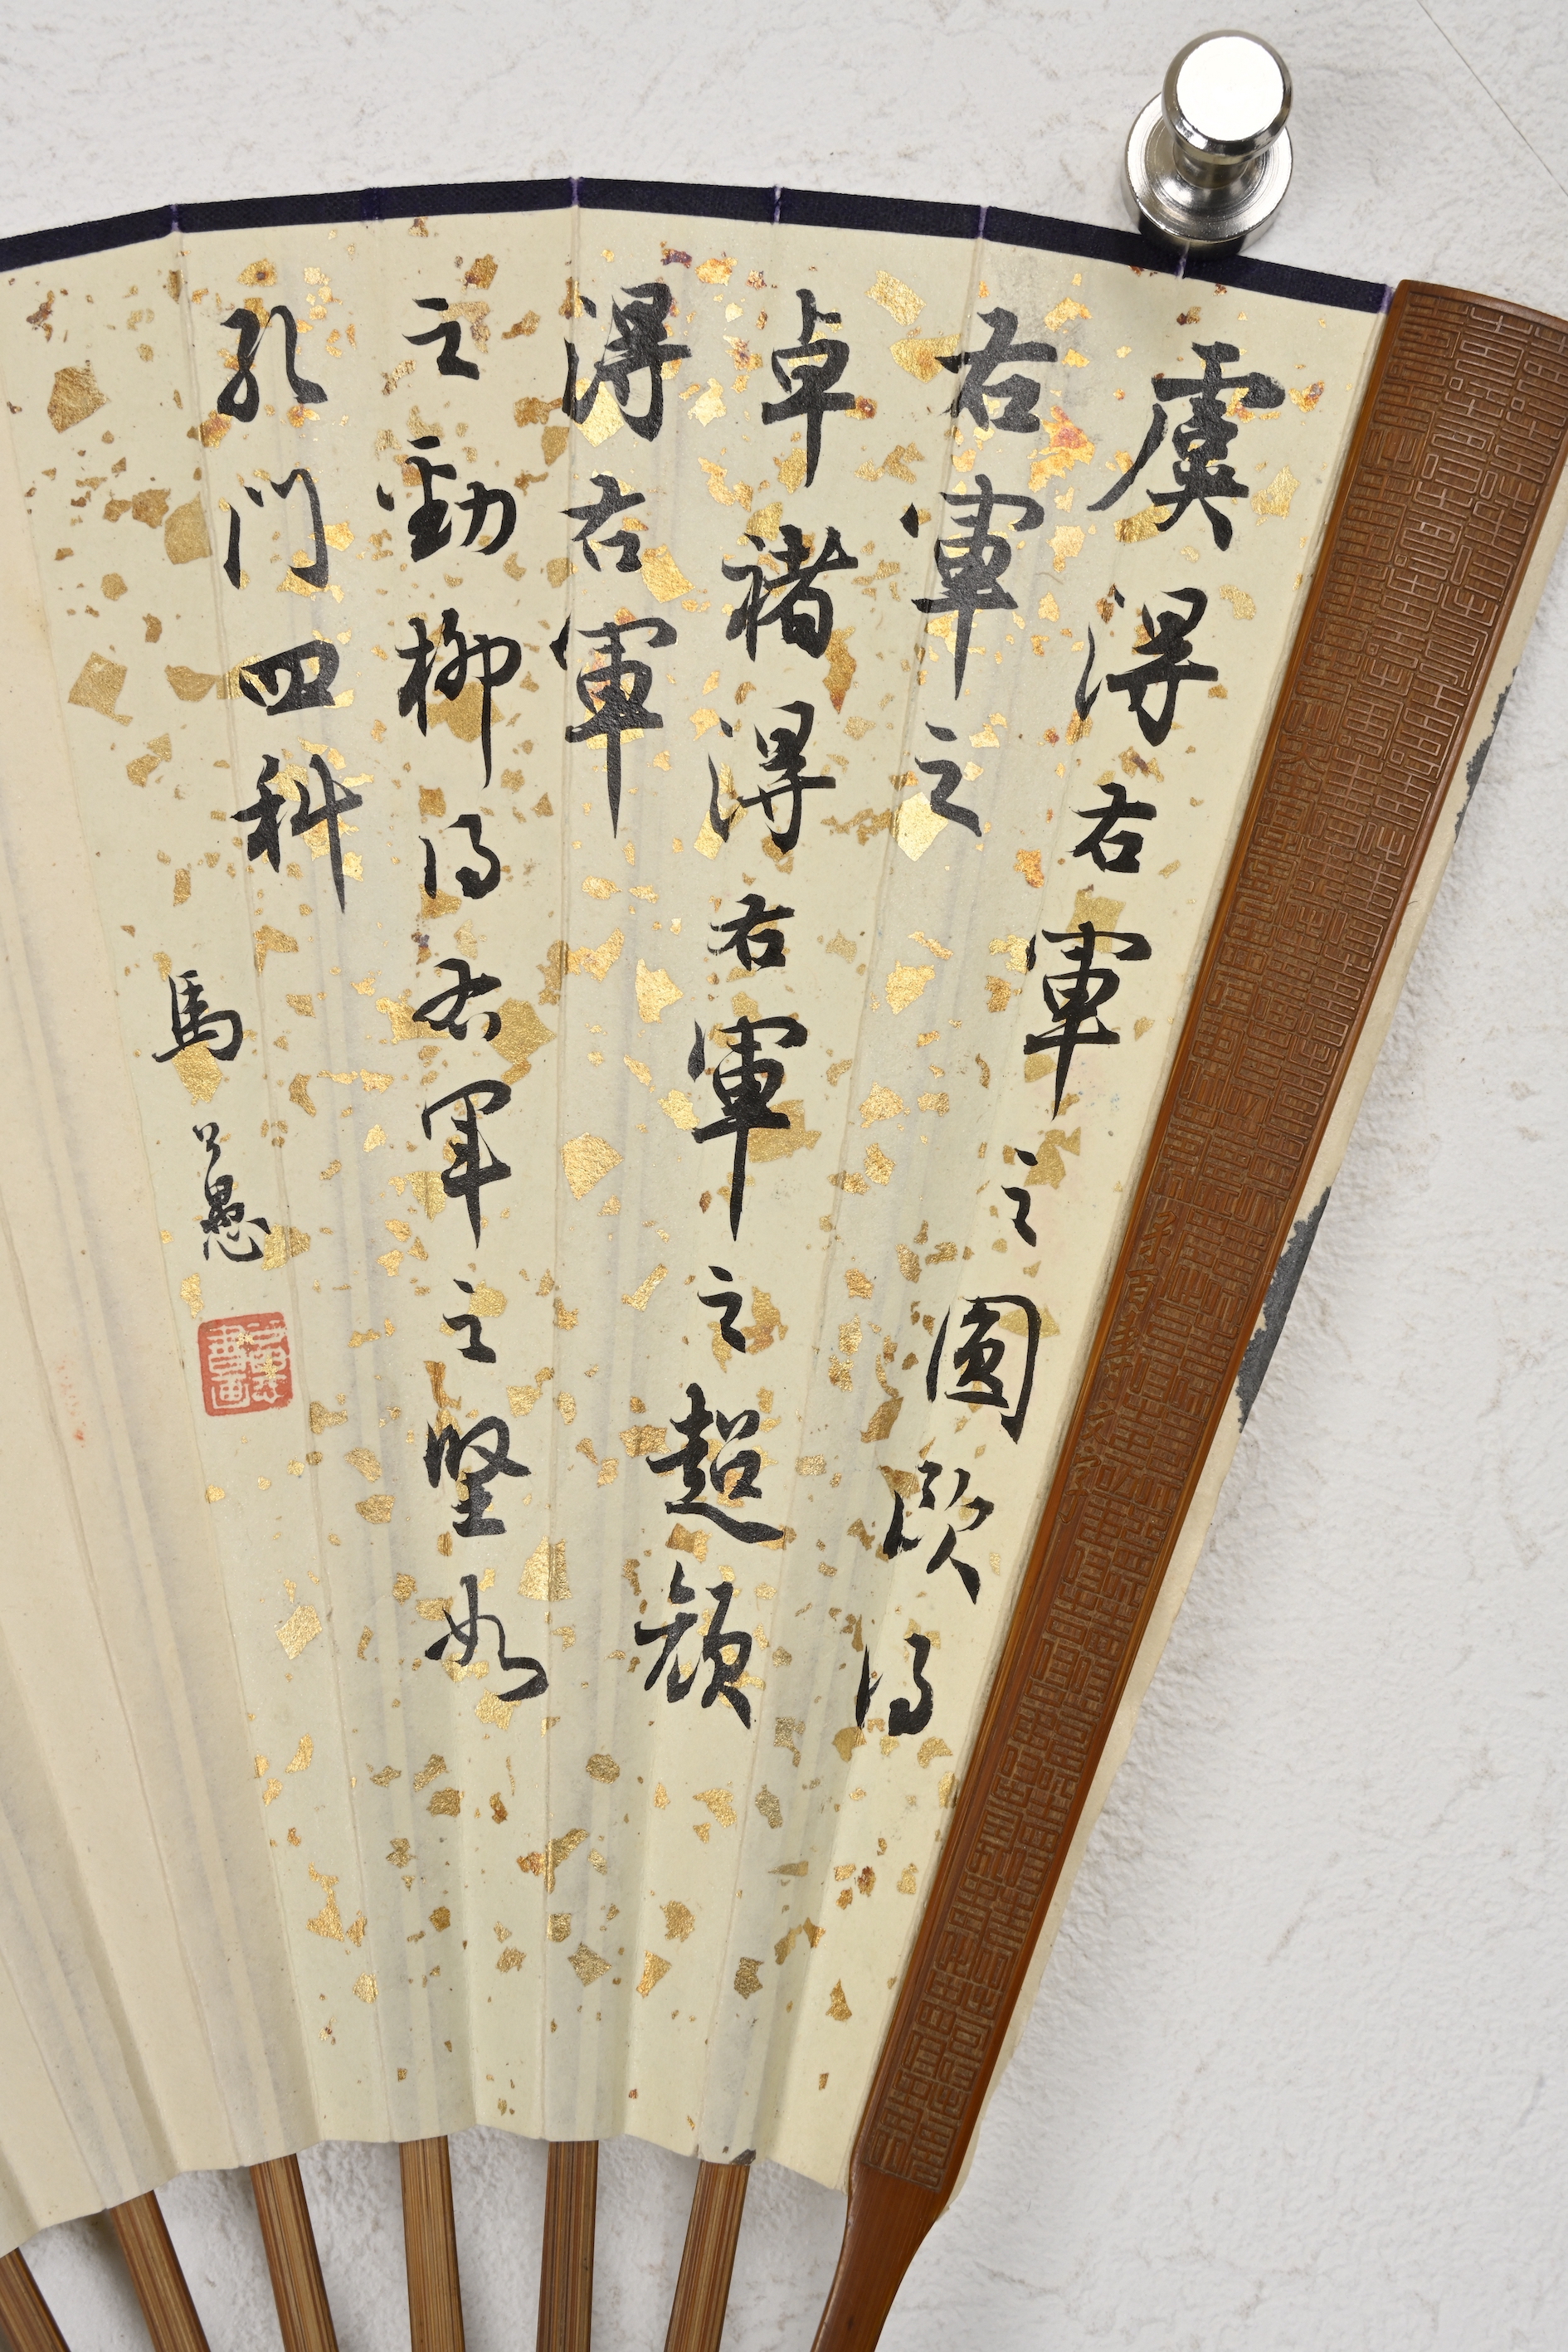 虞得右軍之圓歐得
右軍之
卓褚得右軍之超顏
得右軍
之勁柳得右軍之堅如
孔門四科
馬公愚